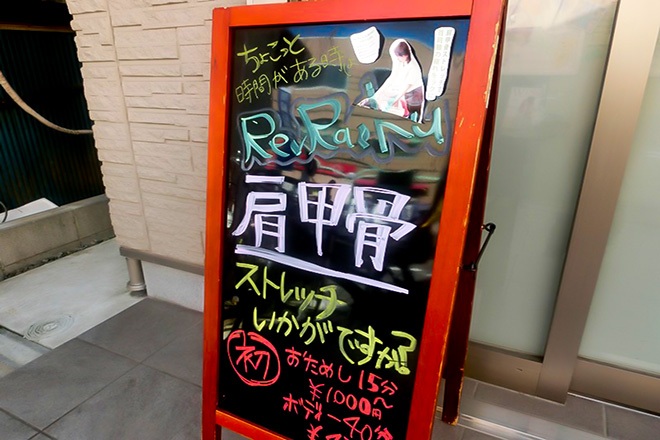 ちょこっと
時間がある時に
ReuRaku
肩甲骨
ストレッチ
いかがですか?
初 おためし15分
¥1000円〜
ボディー40分